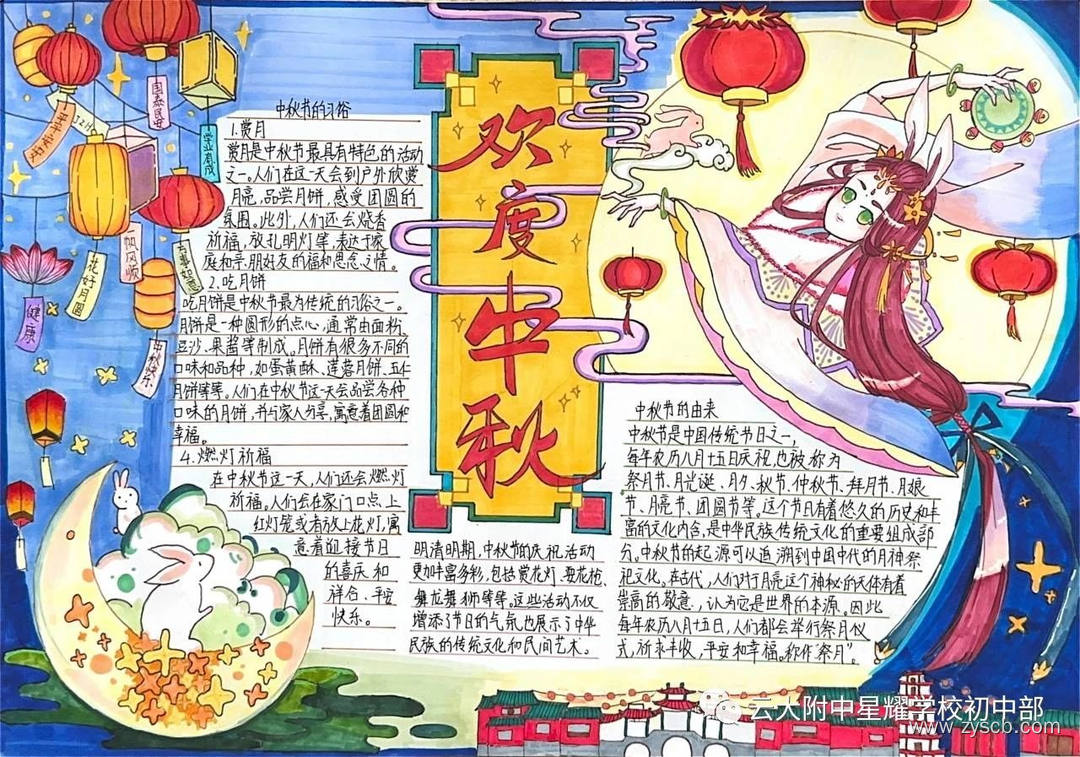 欢度中秋
国泰民安
平平安安
学业有成
帆风顺
花好月圆
万事如意
健康
中秋快乐
中秋节的习俗
1.赏月
赏月是中秋节最具有特色的活动
之一。人们在这一天会到户外欣赏
月亮,品尝月饼,感受团圆的
氛围。此外,人们还会烧香
祈福,放孔明灯等,表达于家
庭和亲朋好友的福和思念之情。
2.吃月饼
吃月饼是中秋节最为传统的习俗之一。
月饼是一种圆形的点心,通常由面粉、
豆沙、果酱等制成。月饼有很多不同的
口味和品种,如蛋黄酥、莲蓉月饼、五仁
月饼等等。人们在中秋节这一天会品尝各种
口味的月饼,并与家人分享,寓意着团圆和
幸福。
4.燃灯祈福
在中秋节这一天,人们还会燃灯
祈福。人们会在家门口点上
红灯笼或者放上花灯,寓
意着迎接节日
的喜庆和
祥合、平安
快乐。
明清明期,中秋节的庆祝活动
更加丰富多彩,包括赏花灯、耍花枪、
舞龙舞狮等等。这些活动不仅
增添了节日的气氛,也展示了中华
民族的传统文化和民间艺术。
中秋节的由来
中秋节是中国传统节日之一,
每年农历八月十五日庆祝,也被称为
祭月节、月光诞、月夕、秋节、仲秋节、拜月节、月娘
节、月亮节、团圆节等。这个节日有着悠久的历史和丰
富的文化内含,是中华民族传统文化的重要组成部
分。中秋节的起源可以追溯到中国中代的月神祭
祀文化。在古代,人们对月亮这个神秘的天体有着
崇高的敬意,认为它是世界的本源。因此
每年农历八月十五日,人们都会举行祭月仪
式,祈求丰收,平安和幸福。称作"祭月"。
云大附中星耀学校初中部
www.zyscb.com